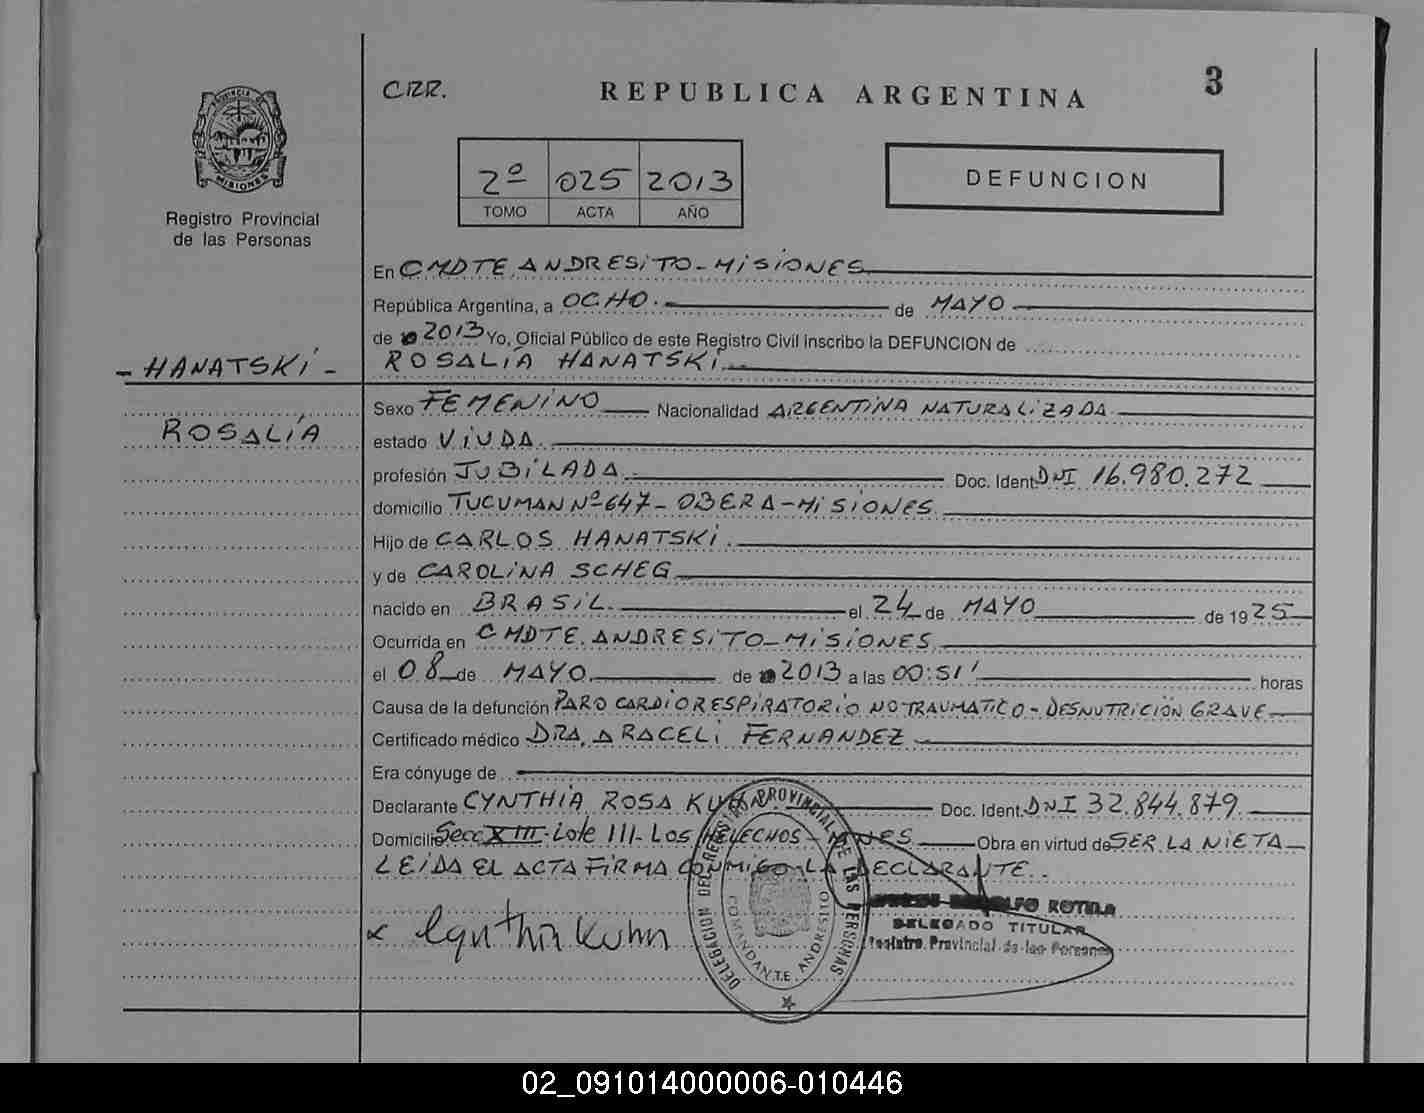 CRR.
REPUBLICA ARGENTINA
3
PROVINCIA DE
MISIONES
Registro Provincial
de las Personas
2º 025 2013
TOMO ACTA AÑO
DEFUNCION
En CMDTE ANDRESITO - MISIONES
República Argentina, a OCHO. de MAYO
de 2013 Yo, Oficial Público de este Registro Civil inscribo la DEFUNCION de
- HANATSKI -
ROSALÍA HANATSKI
Sexo FEMENINO Nacionalidad ARGENTINA NATURALIZADA
ROSALÍA
estado VIUDA.
profesión JUBILADA. Doc. Ident. DNI 16.980.272
domicilio TUCUMAN Nº 647 - OBERA - MISIONES
Hijo de CARLOS HANATSKI.
y de CAROLINA SCHEG
nacido en BRASIL. el 24 de MAYO de 1925
Ocurrida en CMDTE. ANDRESITO - MISIONES
el 08 de MAYO de 2013 a las 00:51' horas
Causa de la defunción PARO CARDIORESPIRATORIO NO TRAUMATICO - DESNUTRICIÓN GRAVE
Certificado médico DRA. ARACELI FERNANDEZ
Era cónyuge de
Declarante CYNTHIA ROSA KUHN Doc. Ident. DNI 32.844.879
Domicilio Secc XIII - Lote III - LOS HELECHOS - MNES. Obra en virtud de SER LA NIETA
LEIDA EL ACTA FIRMA CONMIGO LA DECLARANTE.
x Cynthia Kuhn
DELEGACION DEL REGISTRO PROVINCIAL DE LAS PERSONAS
COMANDANTE ANDRESITO
ROTELA
DELEGADO TITULAR
Registro Provincial de las Personas
02_091014000006-010446